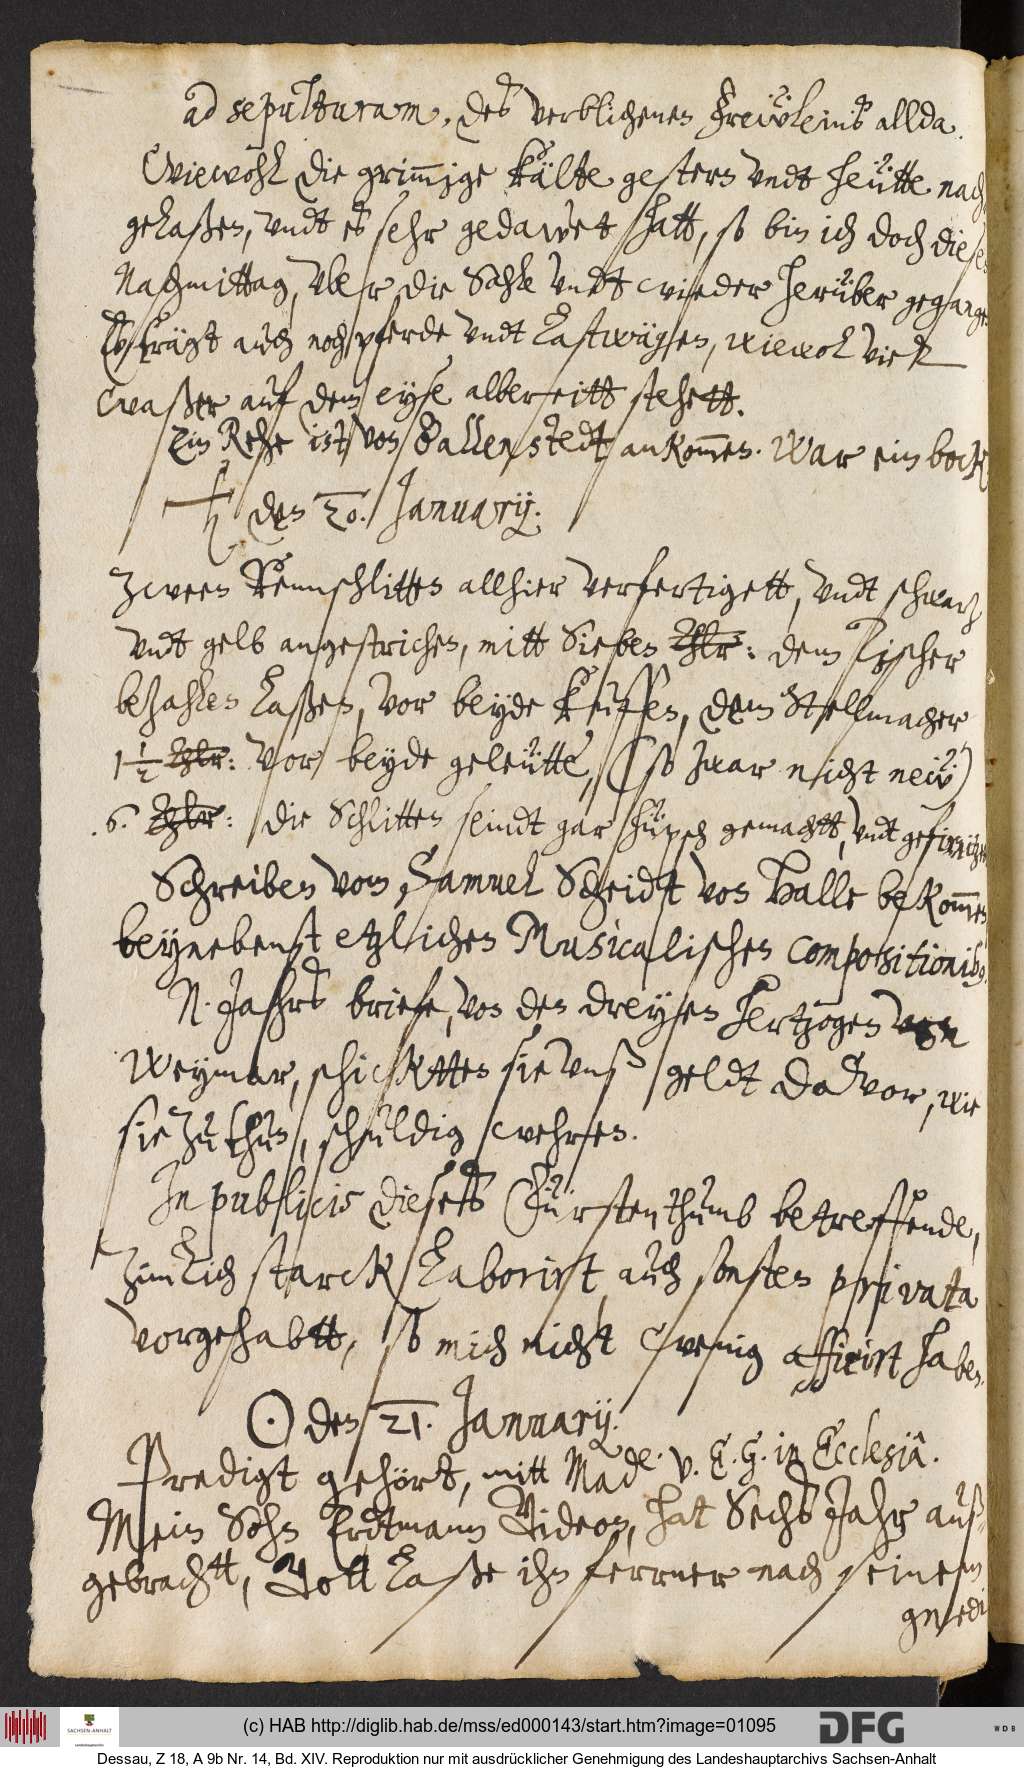 ad sepulturam, des verblichenen Freẅleins allda.
Wiewohl die grim̅ige kälte gestern vndt heütte nach
gelaßen, vndt es sehr gedawet hatt, so bin ich doch diesen
Nachmittag, vber die Sahle vndt wieder herüber gegangen
Es trägt auch noch pferde vndt Lastwägen, wiewol viel
waßer auf dem eyse albereitt stehett.
Ein Rehe ist von Ballenstedt ankom̅en. War ein bock
♄ den 20. January.
Zween Rennschlitten allhier verfertigett, vndt schwartz
vndt gelb angestrichen, mitt Sieben Thlr: dem Tischer
bezahlen laßen, vor beyde Kuffen, dem Stellmacher
1 1/2 Thlr: vor beyde geleütte, (so zwar nicht neẅ)
.6. Thlr: die Schlitten seindt gar hüpsch gemachtt, vndt
Schreiben vom Samuel Scheidt von Halle bekom̅en
beynebenst etzlichen Musicalischen compositionibus.
N. Jahrs briefe, von den dreyen Hertzogen von
Weymar, schicktten sie vnß geldt davor, wie
sie zu thun, schuldig wehren.
In publicis dieses Fürstenthumb betreffende,
zimlich starck laborirt, auch sonsten privata
vorgehabtt, so mich nicht wenig afficirt haben.
☉ den 21. January.
Predigt gehört, mitt Mad.ᵉ v. E. G. in Ecclesiâ.
Mein Sohn Erdtmann Gideon, hat Sechs Jahr auß-
gebrachtt, Gott laße ihn ferrner nach seinem
gnedi
(c) HAB http://diglib.hab.de/mss/ed000143/start.htm?image=01095
SACHSEN-ANHALT
DFG
WDB
Dessau, Z 18, A 9b Nr. 14, Bd. XIV. Reproduktion nur mit ausdrücklicher Genehmigung des Landeshauptarchivs Sachsen-Anhalt